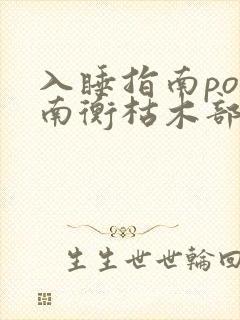 入睡指南po
南衡枯木部
生生世世輪回